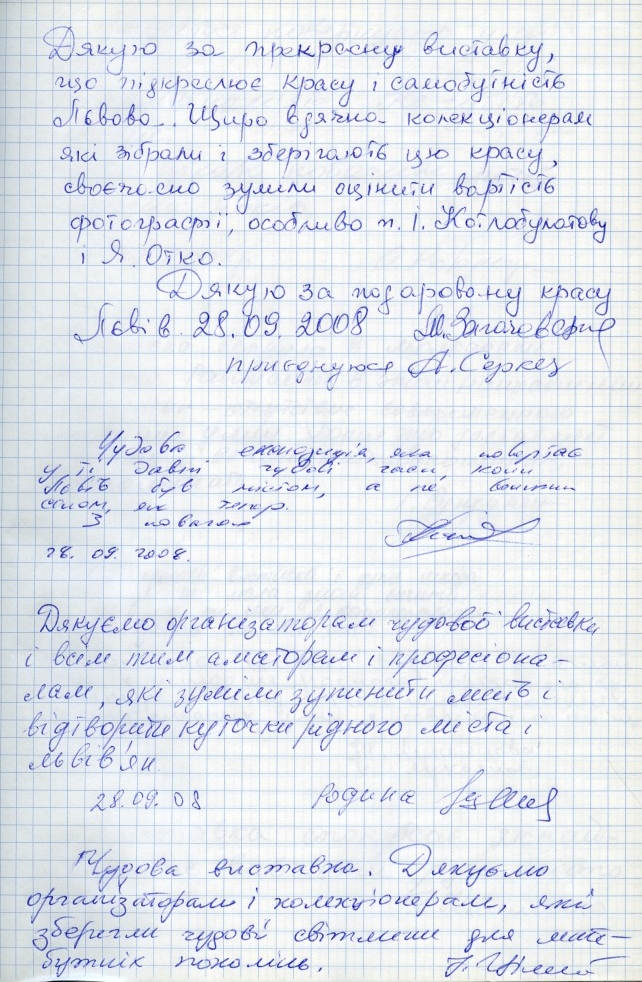 Дякую за прекрасну виставку,
що підкреслює красу і самобутність
Львова. Щиро вдячна колекціонерам
які зібрали і зберігають цю красу,
своєчасно зуміли оцінити вартість
фотографії, особливо п. І. Котлобулатову
і Я. Отко.
Дякую за подаровану красу
Львів 28.09.2008
приєднуюся А.
Чудова експозиція, яка повертає
у ті давні чудові часи, коли
Львів був містом, а не
селом, як тепер.
З повагою
28.09.2008.
Дякуємо організаторам чудової виставки
і всім тим аматорам і професіона-
лам, які зуміли зупинити мить і
відтворити куточки рідного міста і
львів'ян.
28.09.08 Родина
Чудова виставка. Дякуємо
організаторам і колекціонерам, які
зберегли чудові світлини для май-
бутніх поколінь.